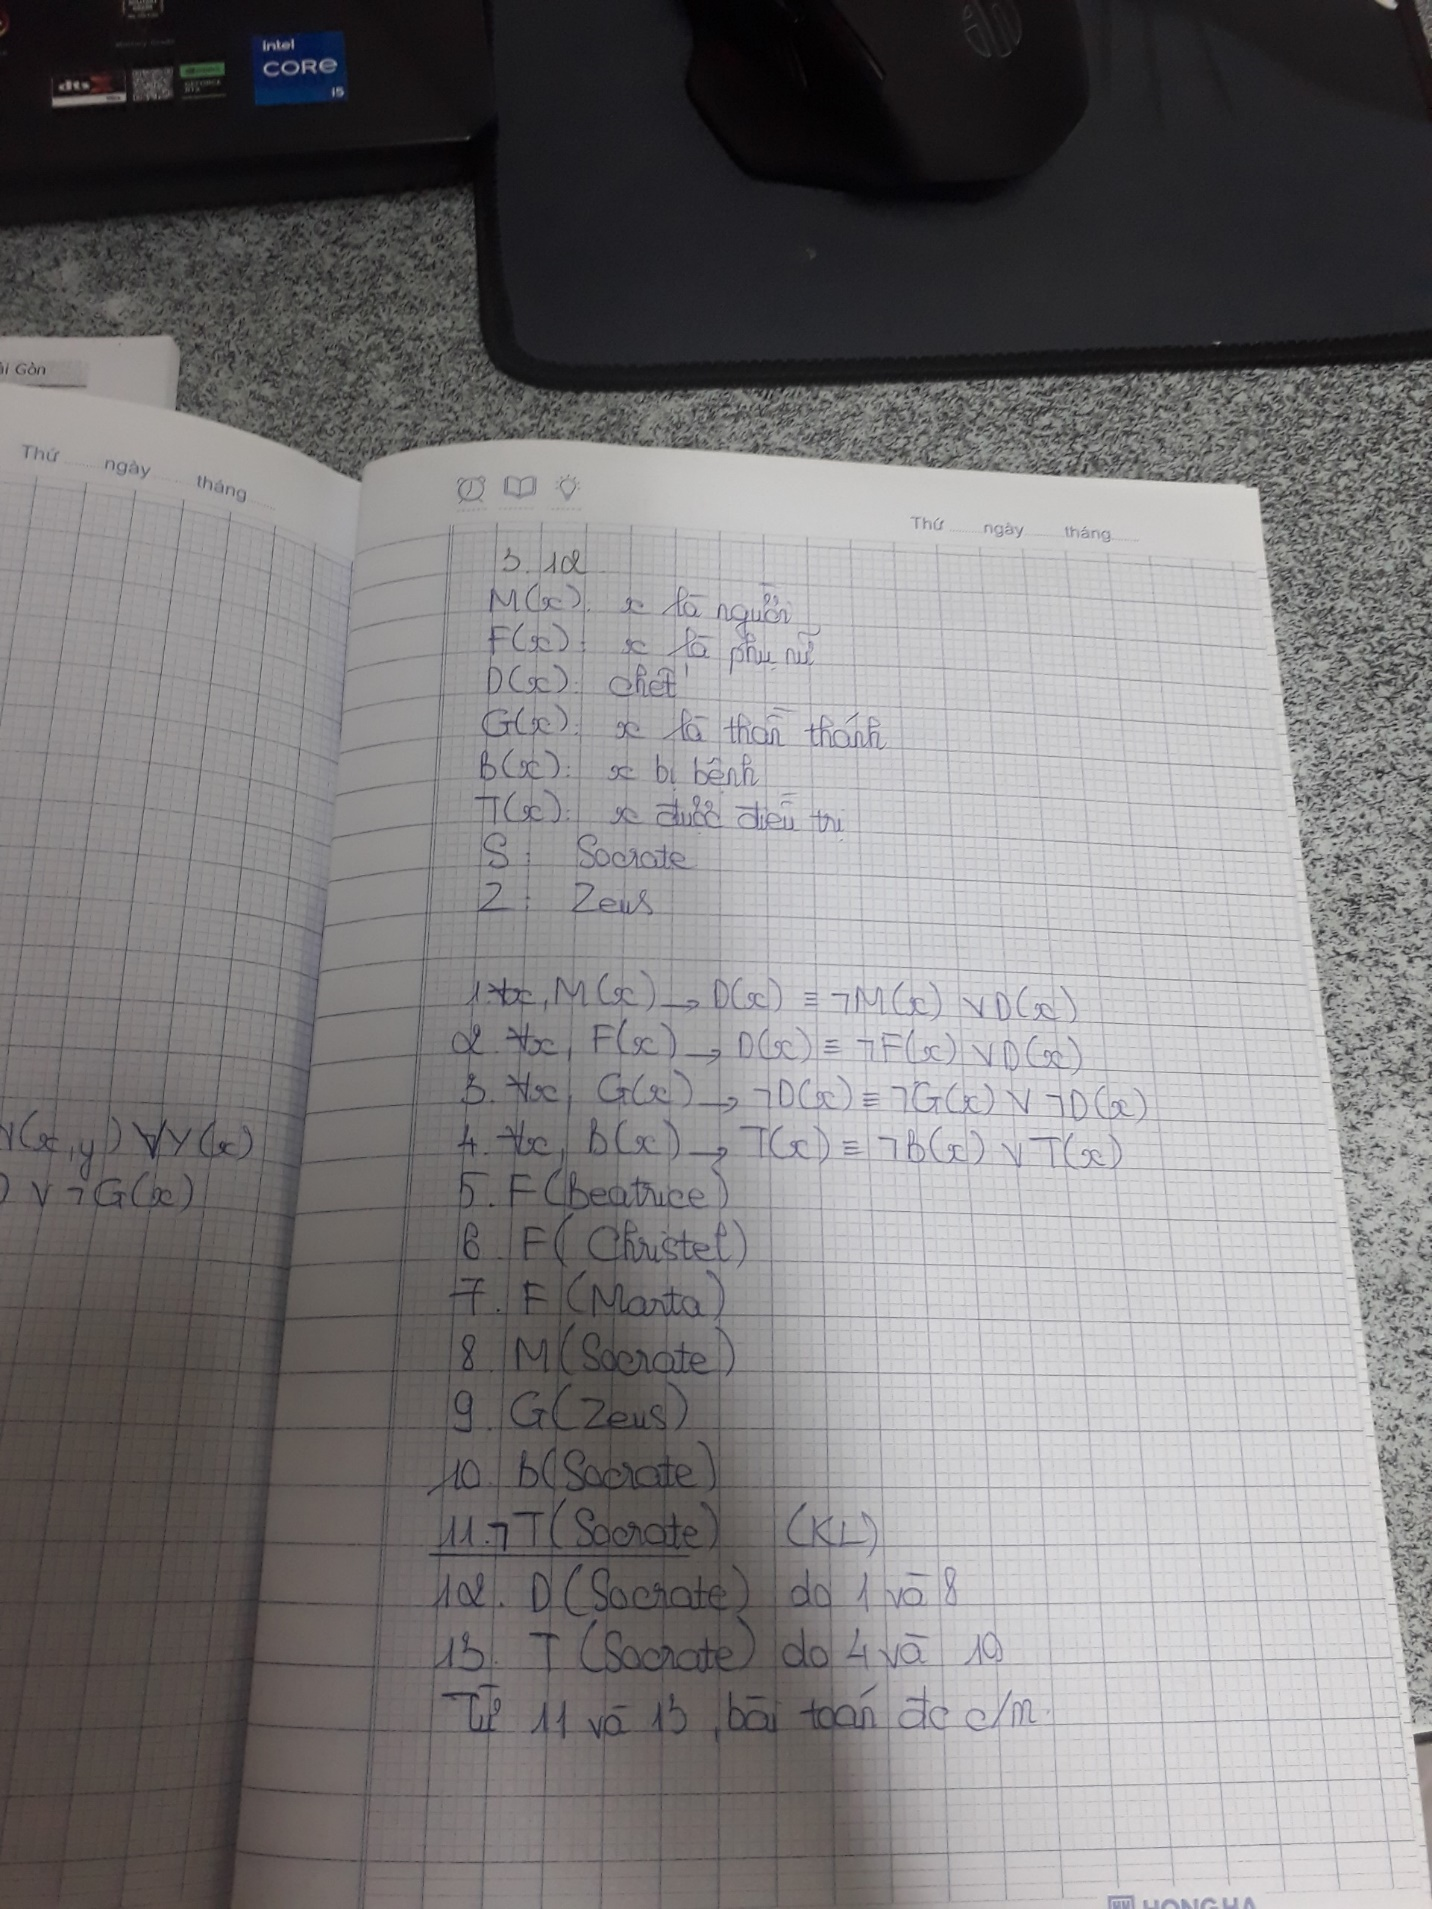 intel
CORE
i5
dts
ài Gòn
Thứ ngày tháng
Thứ ngày tháng
3.12
M(x): x là người
F(x): x là phụ nữ
D(x): chết
G(x): x là thần thánh
B(x): x bị bệnh
T(x): x được điều trị
S: Socrate
Z: Zeus
1. ∀x, M(x) → D(x) ≡ ¬M(x) ∨ D(x)
2. ∀x, F(x) → D(x) ≡ ¬F(x) ∨ D(x)
3. ∀x, G(x) → ¬D(x) ≡ ¬G(x) ∨ ¬D(x)
4. ∀x, B(x) → T(x) ≡ ¬B(x) ∨ T(x)
(x,y) ∀Y(x)
) ∨ ¬G(x)
5. F(Beatrice)
6 F(Christel)
7. F(Marta)
8 M(Socrate)
9. G(Zeus)
10. B(Socrate)
11. ¬T(Socrate) (KL)
12. D(Socrate) do 1 và 8
13. T(Socrate) do 4 và 10
Từ 11 và 13, bài toán đc c/m.
HONG HA